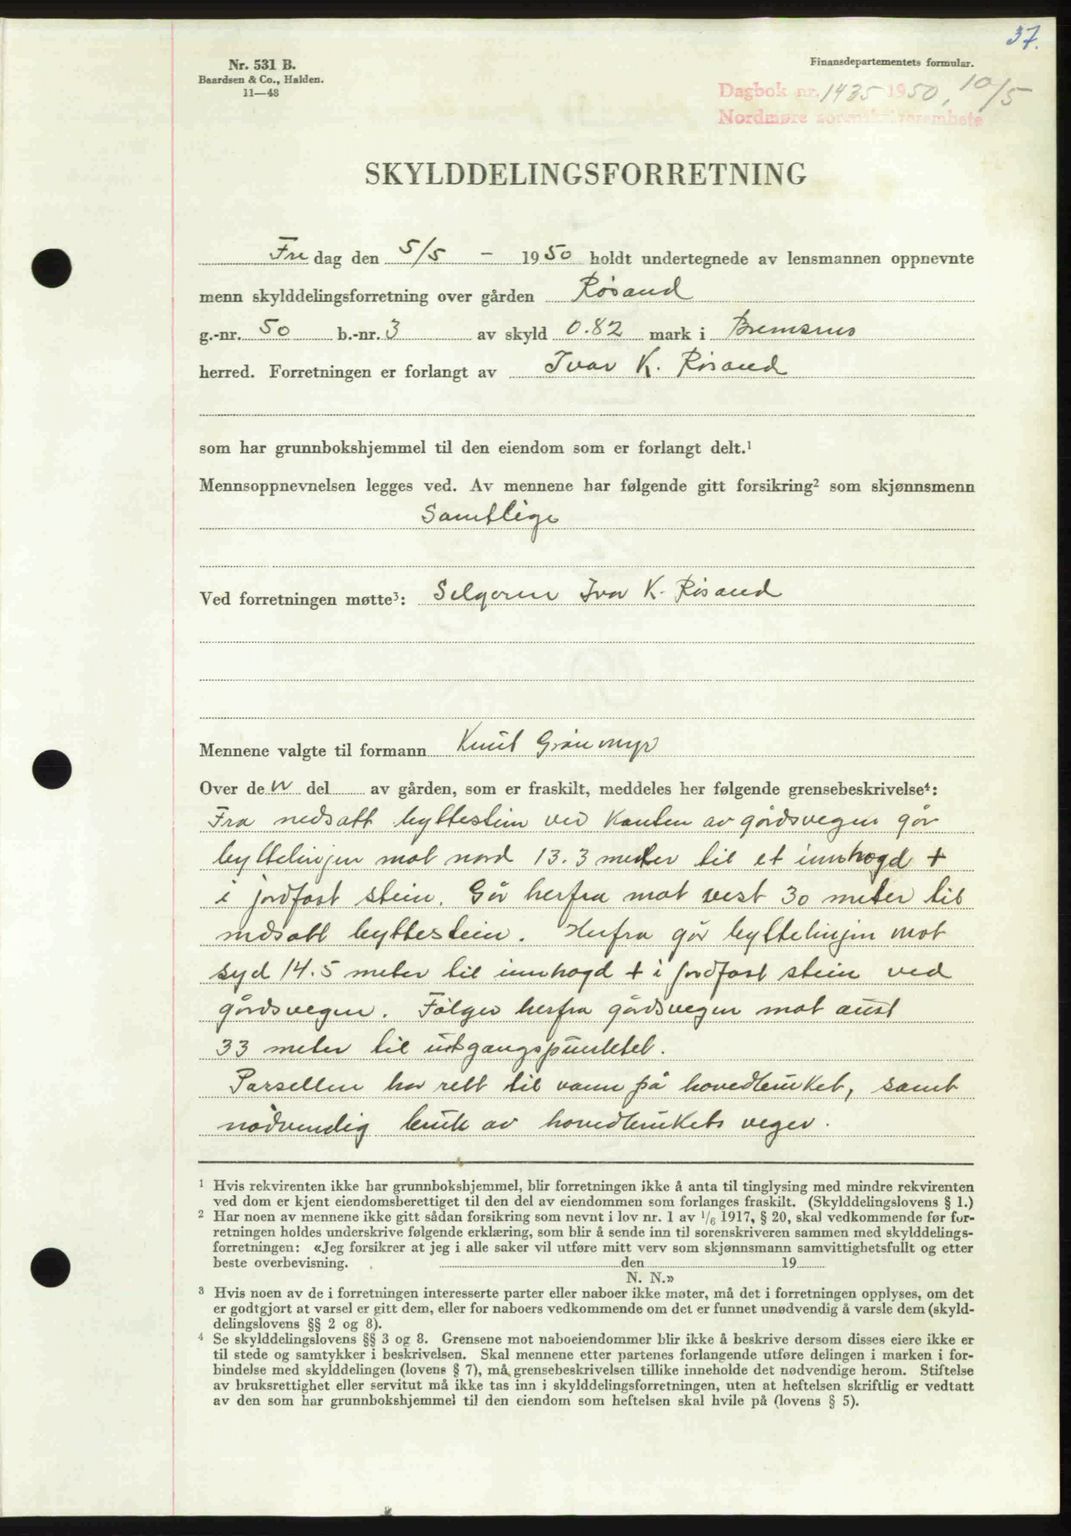 37.
Nr. 531 B.
Baardsen & Co., Halden.
11—48
Finansdepartementets formular.
Dagbok nr. 1435 1950, 10/5
Nordmøre sorenskriverembete
SKYLDDELINGSFORRETNING
Fre dag den 5/5 - 1950 holdt undertegnede av lensmannen oppnevnte
menn skylddelingsforretning over gården Røsand
g.-nr. 50 b.-nr. 3 av skyld 0.82 mark i Bremsnes
herred. Forretningen er forlangt av Ivar K. Røsand
som har grunnbokshjemmel til den eiendom som er forlangt delt.¹
Mennsoppnevnelsen legges ved. Av mennene har følgende gitt forsikring² som skjønnsmenn
Samtlige
Ved forretningen møtte³: Selgeren Ivar K. Røsand
Mennene valgte til formann Knut Grønmyr
Over den del av gården, som er fraskilt, meddeles her følgende grensebeskrivelse⁴:
Fra nedsatt byttestein ved Kanten av gårdsvegen går
byttelinjen mot nord 13.3 meter til et innhogd +
i jordfast stein. Går herfra mot vest 30 meter til
nedsatt byttestein. Herfra går byttelinjen mot
syd 14.5 meter til innhogd + i jordfast stein ved
gårdsvegen. Følger herfra gårdsvegen mot aust
33 meter til utgangspunktet.
Parsellen har rett til vann på hovedbruket, samt
nødvendig bruk av hovedbrukets veger.
¹ Hvis rekvirenten ikke har grunnbokshjemmel, blir forretningen ikke å anta til tinglysing med mindre rekvirenten
ved dom er kjent eiendomsberettiget til den del av eiendommen som forlanges fraskilt. (Skylddelingslovens § 1.)
² Har noen av mennene ikke gitt sådan forsikring som nevnt i lov nr. 1 av 1/6 1917, § 20, skal vedkommende før for-
retningen holdes underskrive følgende erklæring, som blir å sende inn til sorenskriveren sammen med skylddelings-
forretningen: «Jeg forsikrer at jeg i alle saker vil utføre mitt verv som skjønnsmann samvittighetsfullt og etter
beste overbevisning. den 19
N. N.»
³ Hvis noen av de i forretningen interesserte parter eller naboer ikke møter, må det i forretningen opplyses, om det
er godtgjort at varsel er gitt dem, eller for naboers vedkommende om det er funnet unødvendig å varsle dem (skyld-
delingslovens §§ 2 og 8).
⁴ Se skylddelingslovens §§ 3 og 8. Grensene mot naboeiendommer blir ikke å beskrive dersom disses eiere ikke er
til stede og samtykker i beskrivelsen. Skal mennene etter partenes forlangende utføre delingen i marken i for-
bindelse med skylddelingen (lovens § 7), må grensebeskrivelsen tillike inneholde det nødvendige herom. Stiftelse
av bruksrettighet eller servitut må ikke tas inn i skylddelingsforretningen, uten at heftelsen skriftlig er vedtatt
av den som har grunnbokshjemmel til den eiendom som heftelsen skal hvile på (lovens § 5).